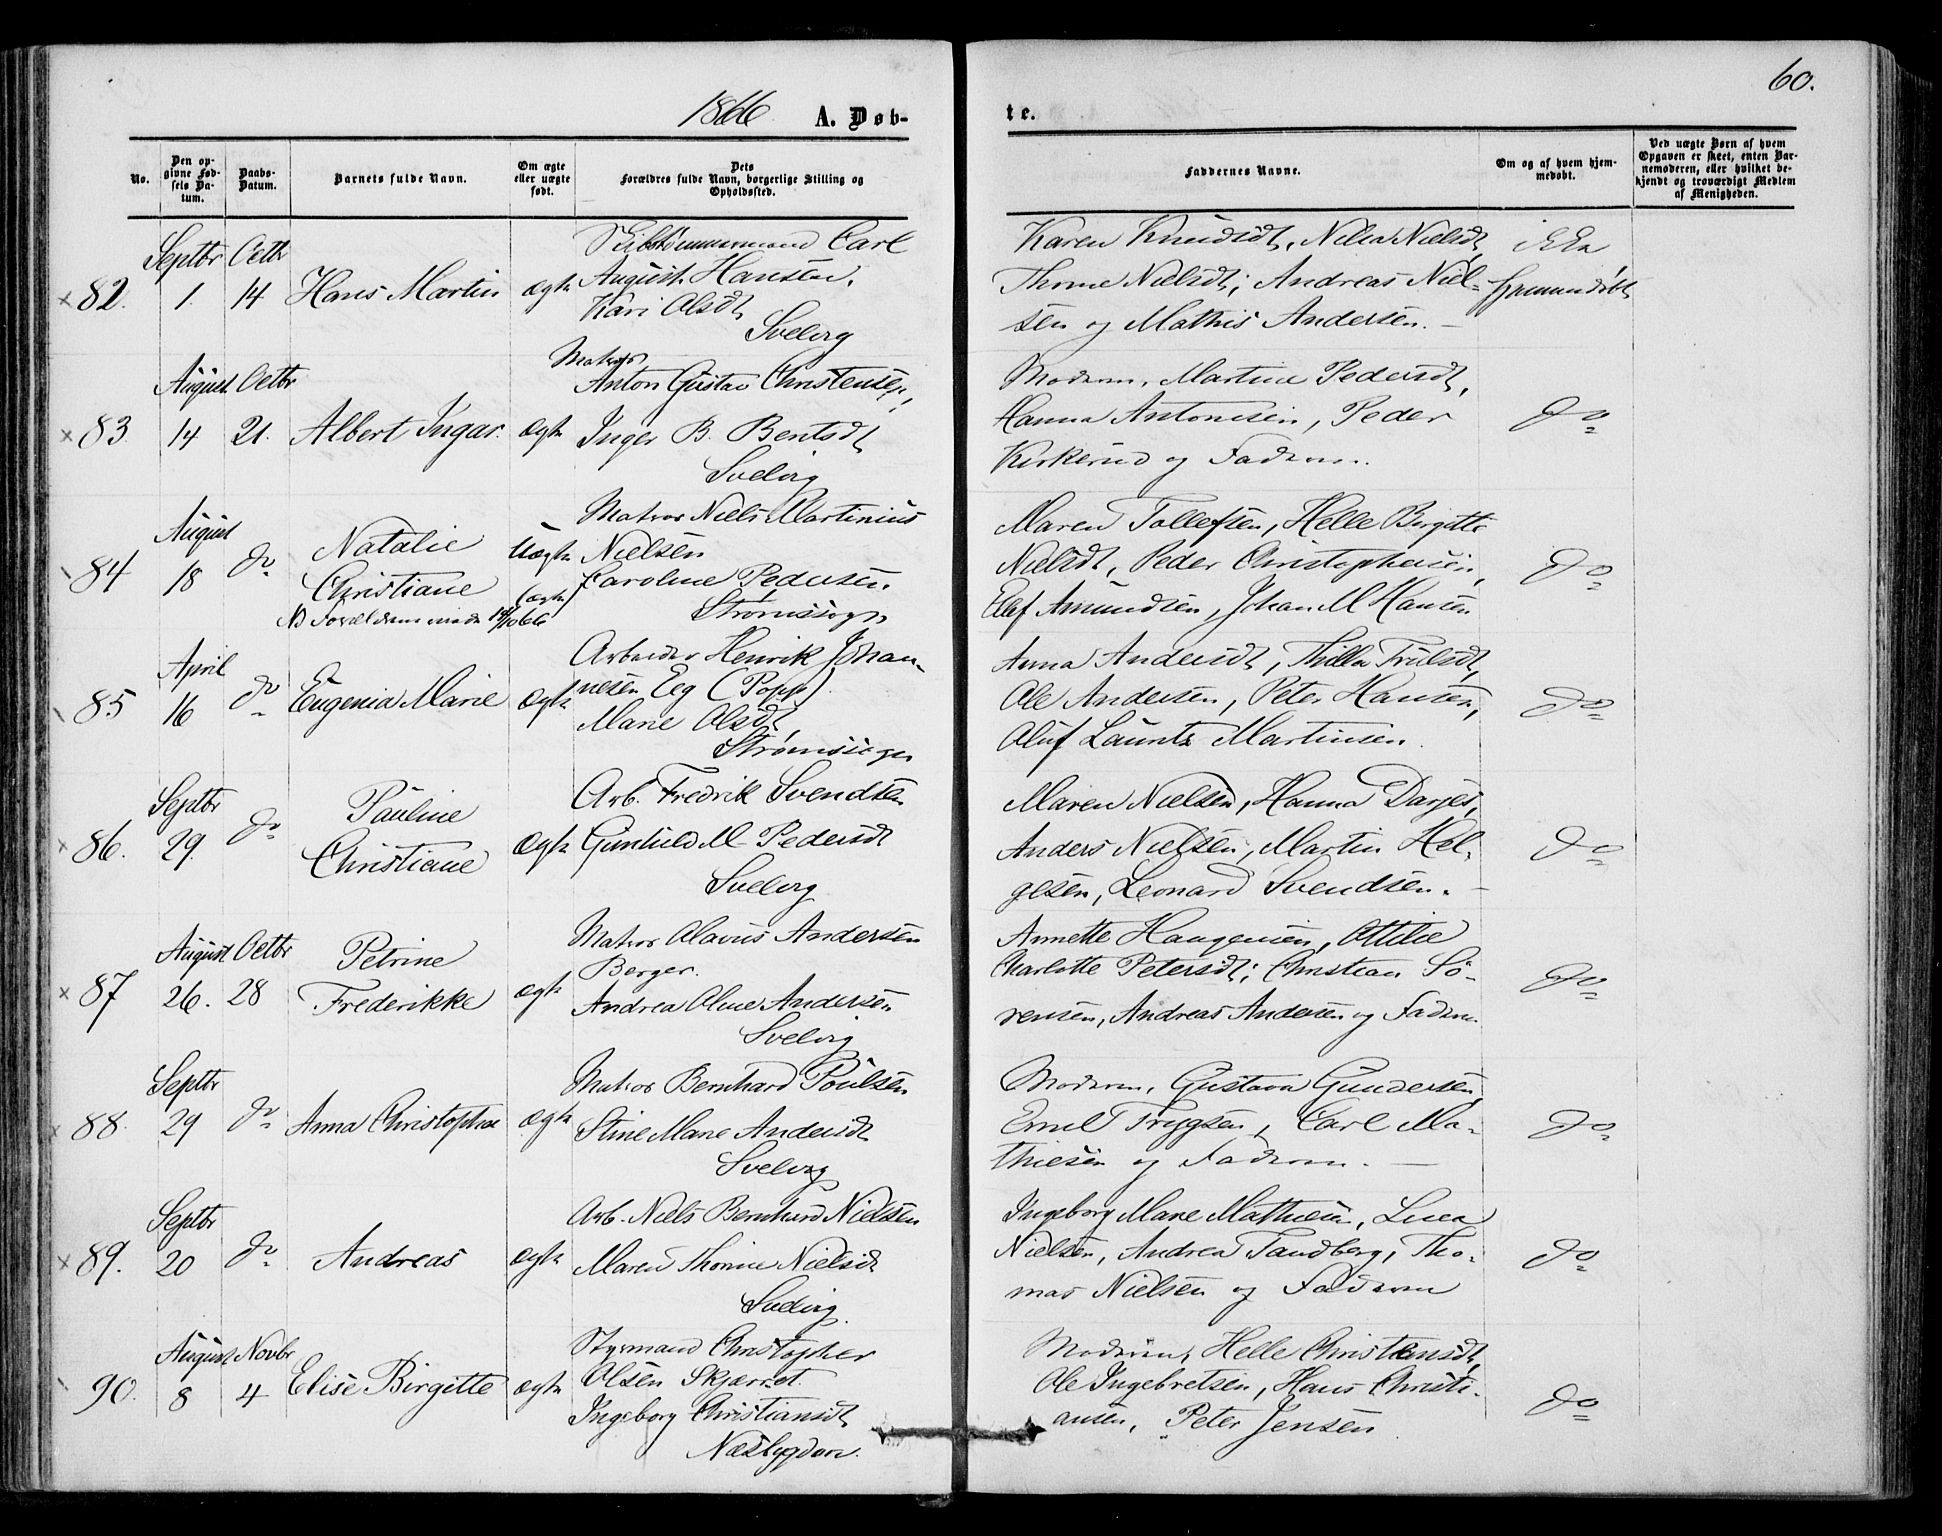 1866
A. Døb-
te.
60.
No.
Den op-
givne Fød-
sels Da-
tum.
Daabs-
Datum.
Barnets fulde Navn.
Om ægte
eller uægte
født.
Dets
Forældres fulde Navn, borgerlige Stilling og
Opholdssted.
Faddernes Navne.
Om og af hvem hjem-
medøbt.
Ved uægte Børn af hvem
Opgaven er skeet, enten Bar-
nemoderen, eller hvilket be-
kjendt og troværdigt Medlem
af Menigheden.
× 82.
Septbr
1.
Octbr
14
Hans Martin
ægte
Skibstømmermand Carl
August Hansen.
Kari Olsdt
Svelvig
Karen Knudsdt, Nielsdt,
Nielsdt; Andreas Niel-
sen og Mathis Andersen.
ikke
hjemmedøbt
× 83.
August
14
Octbr
21.
Albert Ingar.
ægte
Matros
Anton Gustav Christensen,
Inger B. Bentsdt
Svelvig
Moderen, Martine Pedersdt,
Hanna Antonisen, Peder
Kirkerud og Faderen.
Do
84
August
18
Do
Natalie
Christiane
NB Forældrene viede 19/10 66
Uægte
(ægte)
Matros Niels Martinius
Nielsen
Caroline Pedersen.
Strømssogn
Maren Tollefsen, Helle Birgitte
Nielsdt, Peder Christophersen,
Elef Amundsen, Johan M Hansen
Do
85
April
16
Do
Eugenia Marie
ægte
Arbeider Henrik Johan-
nesen Eeg (Popp).
Marie Olsdt
Strømssogn
Anna Andersdt, Thilla
Ole Andersen, Peter Hansen,
Oluf Lauritz Martinsen.
Do
× 86.
Septbr
29.
Do
Pauline
Christiane
ægte
Arb. Fredrik Svendsen
Gunhild M Pedersdt
Svelvig
Maren Nielsen, Hanna Darjes,
Anders Nielsen, Martin Hel-
gesen, Leonard Svendsen.
Do
× 87
August
26.
Octbr
28
Petrine
Frederikke
ægte
Matros Olavus Andersen
Berger.
Andrea Oline Andersen
Svelvig
Annette Haagensen, Ottilie
Charlotte Petersdt; Christian Sö-
rensen, Andreas Andersen og Faderen
Do
× 88.
Septbr
29
Do
Anna Christophea
ægte
Matros Bernhard Poulsen
Stine Marie Andersdt
Svelvig
Moderen, Gustava Gundersen,
Emil Trygsen, Carl Ma-
thiesen og Faderen.
Do
× 89.
Septbr
20
Do
Andreas
ægte
Arb. Niels Bernhard Nielsen
Maren Thorine Nielsdt
Svelvig.
Ingeborg Marie Mathisen,
Nielsen, Andrea Tandberg, Tho-
mas Nielsen og Faderen
Do
90.
August
8
Novbr
4
Elise Birgitte
ægte
Styrmand Christopher
Olsen Skjærret.
Ingeborg Christiansdt
Næsbygden.
Moderen, Helle Christiansdt,
Ole Ingebretsen, Hans Christi-
ansen, Peter Jensen
Do